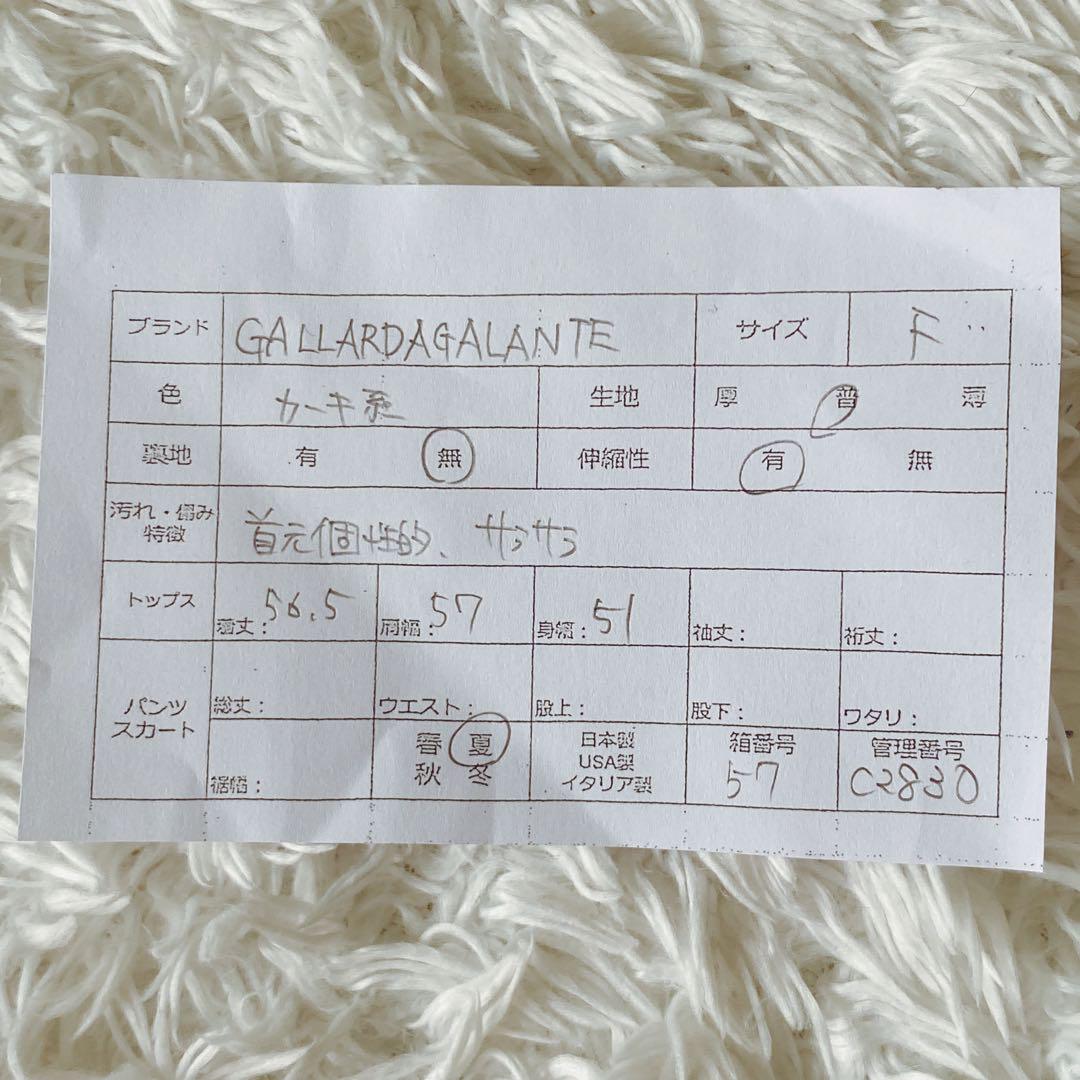 ブランド GALLARDAGALANTE サイズ F
色 カーキ系 生地 厚 普 薄
裏地 有 無 伸縮性 有 無
汚れ・傷み
特徴 首元個性的、サラサラ
トップス 着丈: 56.5 肩幅: 57 身幅: 51 袖丈: 裄丈:
パンツ
スカート
総丈: ウエスト: 股上: 股下: ワタリ:
裾幅:
春 夏
秋 冬
日本製
USA製
イタリア製
箱番号
57
管理番号
C2830